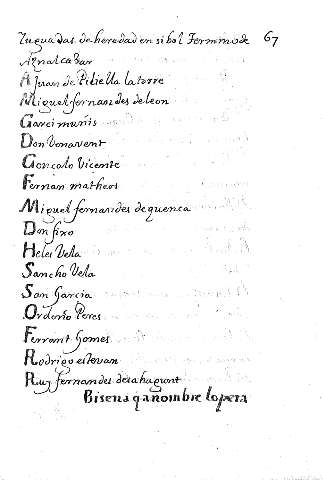 Yuguadas de heredad en si bol Termino de 67
Aznalcazar
A Juan de Pidiella la torre
Miguel fernandes de leon
Garci muñis
Don Vonavent
Gonçalo Vicente
Fernan matheos
Miguel fernandes de quenca
Don fixo
Heles Vela
Sancho Vela
San Garcia
Ordoño Peres
Ferrant Gomes
Rodrigo estevan
Ruy fernandes de sahagunt
Bisena q a nombre lopera